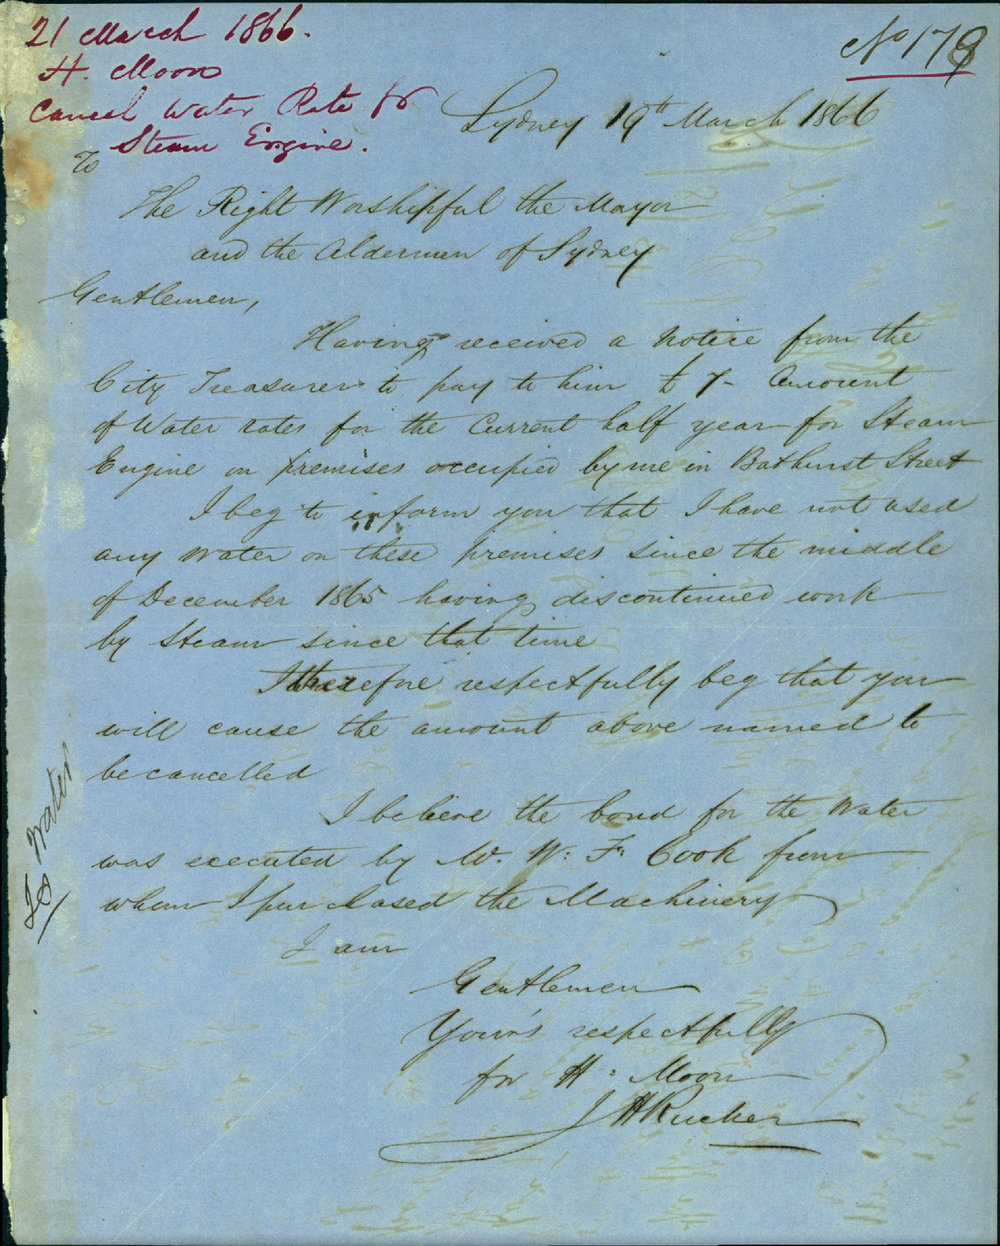 21 March 1866.
H. Moon
Cancel Water Rate for
Steam Engine.
No 178
Sydney 19th March 1866
To
The Right Worshipful the Mayor
and the Aldermen of Sydney
Gentlemen,
Having received a notice from the
City Treasurer to pay to him £7- Amount
of Water rates for the Current half year for Steam
Engine on premises occupied by me in Bathurst Street
I beg to inform you that I have not used
any Water on these premises since the middle
of December 1865 having discontinued work
by Steam since that time
I therefore respectfully beg that you
will cause the amount above named to
be cancelled
I believe the bond for the Water
was executed by W. W: F: Cook from
whom I purchased the Machinery
I am
Gentlemen
Your's respectfully
for H: Moon
J H Rucker
Water